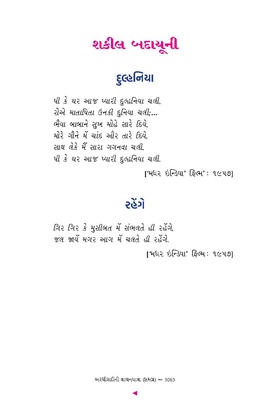 શકીલ બદાયૂની
દુલ્હનિયા
પી કે ઘર આજ પ્યારી દુલ્હનિયા ચલી.
રોએ માતાપિતા ઉનકી દુનિયા ચલી;...
ભૈયા બાબાને સુખ મોહે સારે દિયે.
મોરે ગૌને મેં ચાંદ ઔર તારે દિયે.
સાથ લેકે મૈં સારા ગગનવા ચલી.
પી કે ઘર આજ પ્યારી દુલ્હનિયા ચલી.
['મધર ઇન્ડિયા' ફિલ્મ : ૧૯૫૭]
રહેંગે
ગિર ગિર કે મુસીબત મેં સંભલતે હી રહેંગે.
જલ જાયેં મગર આગ મેં ચલતે હી રહેંગે.
['મધર ઇન્ડિયા' ફિલ્મ : ૧૯૫૭]
— ૩૦૬૭